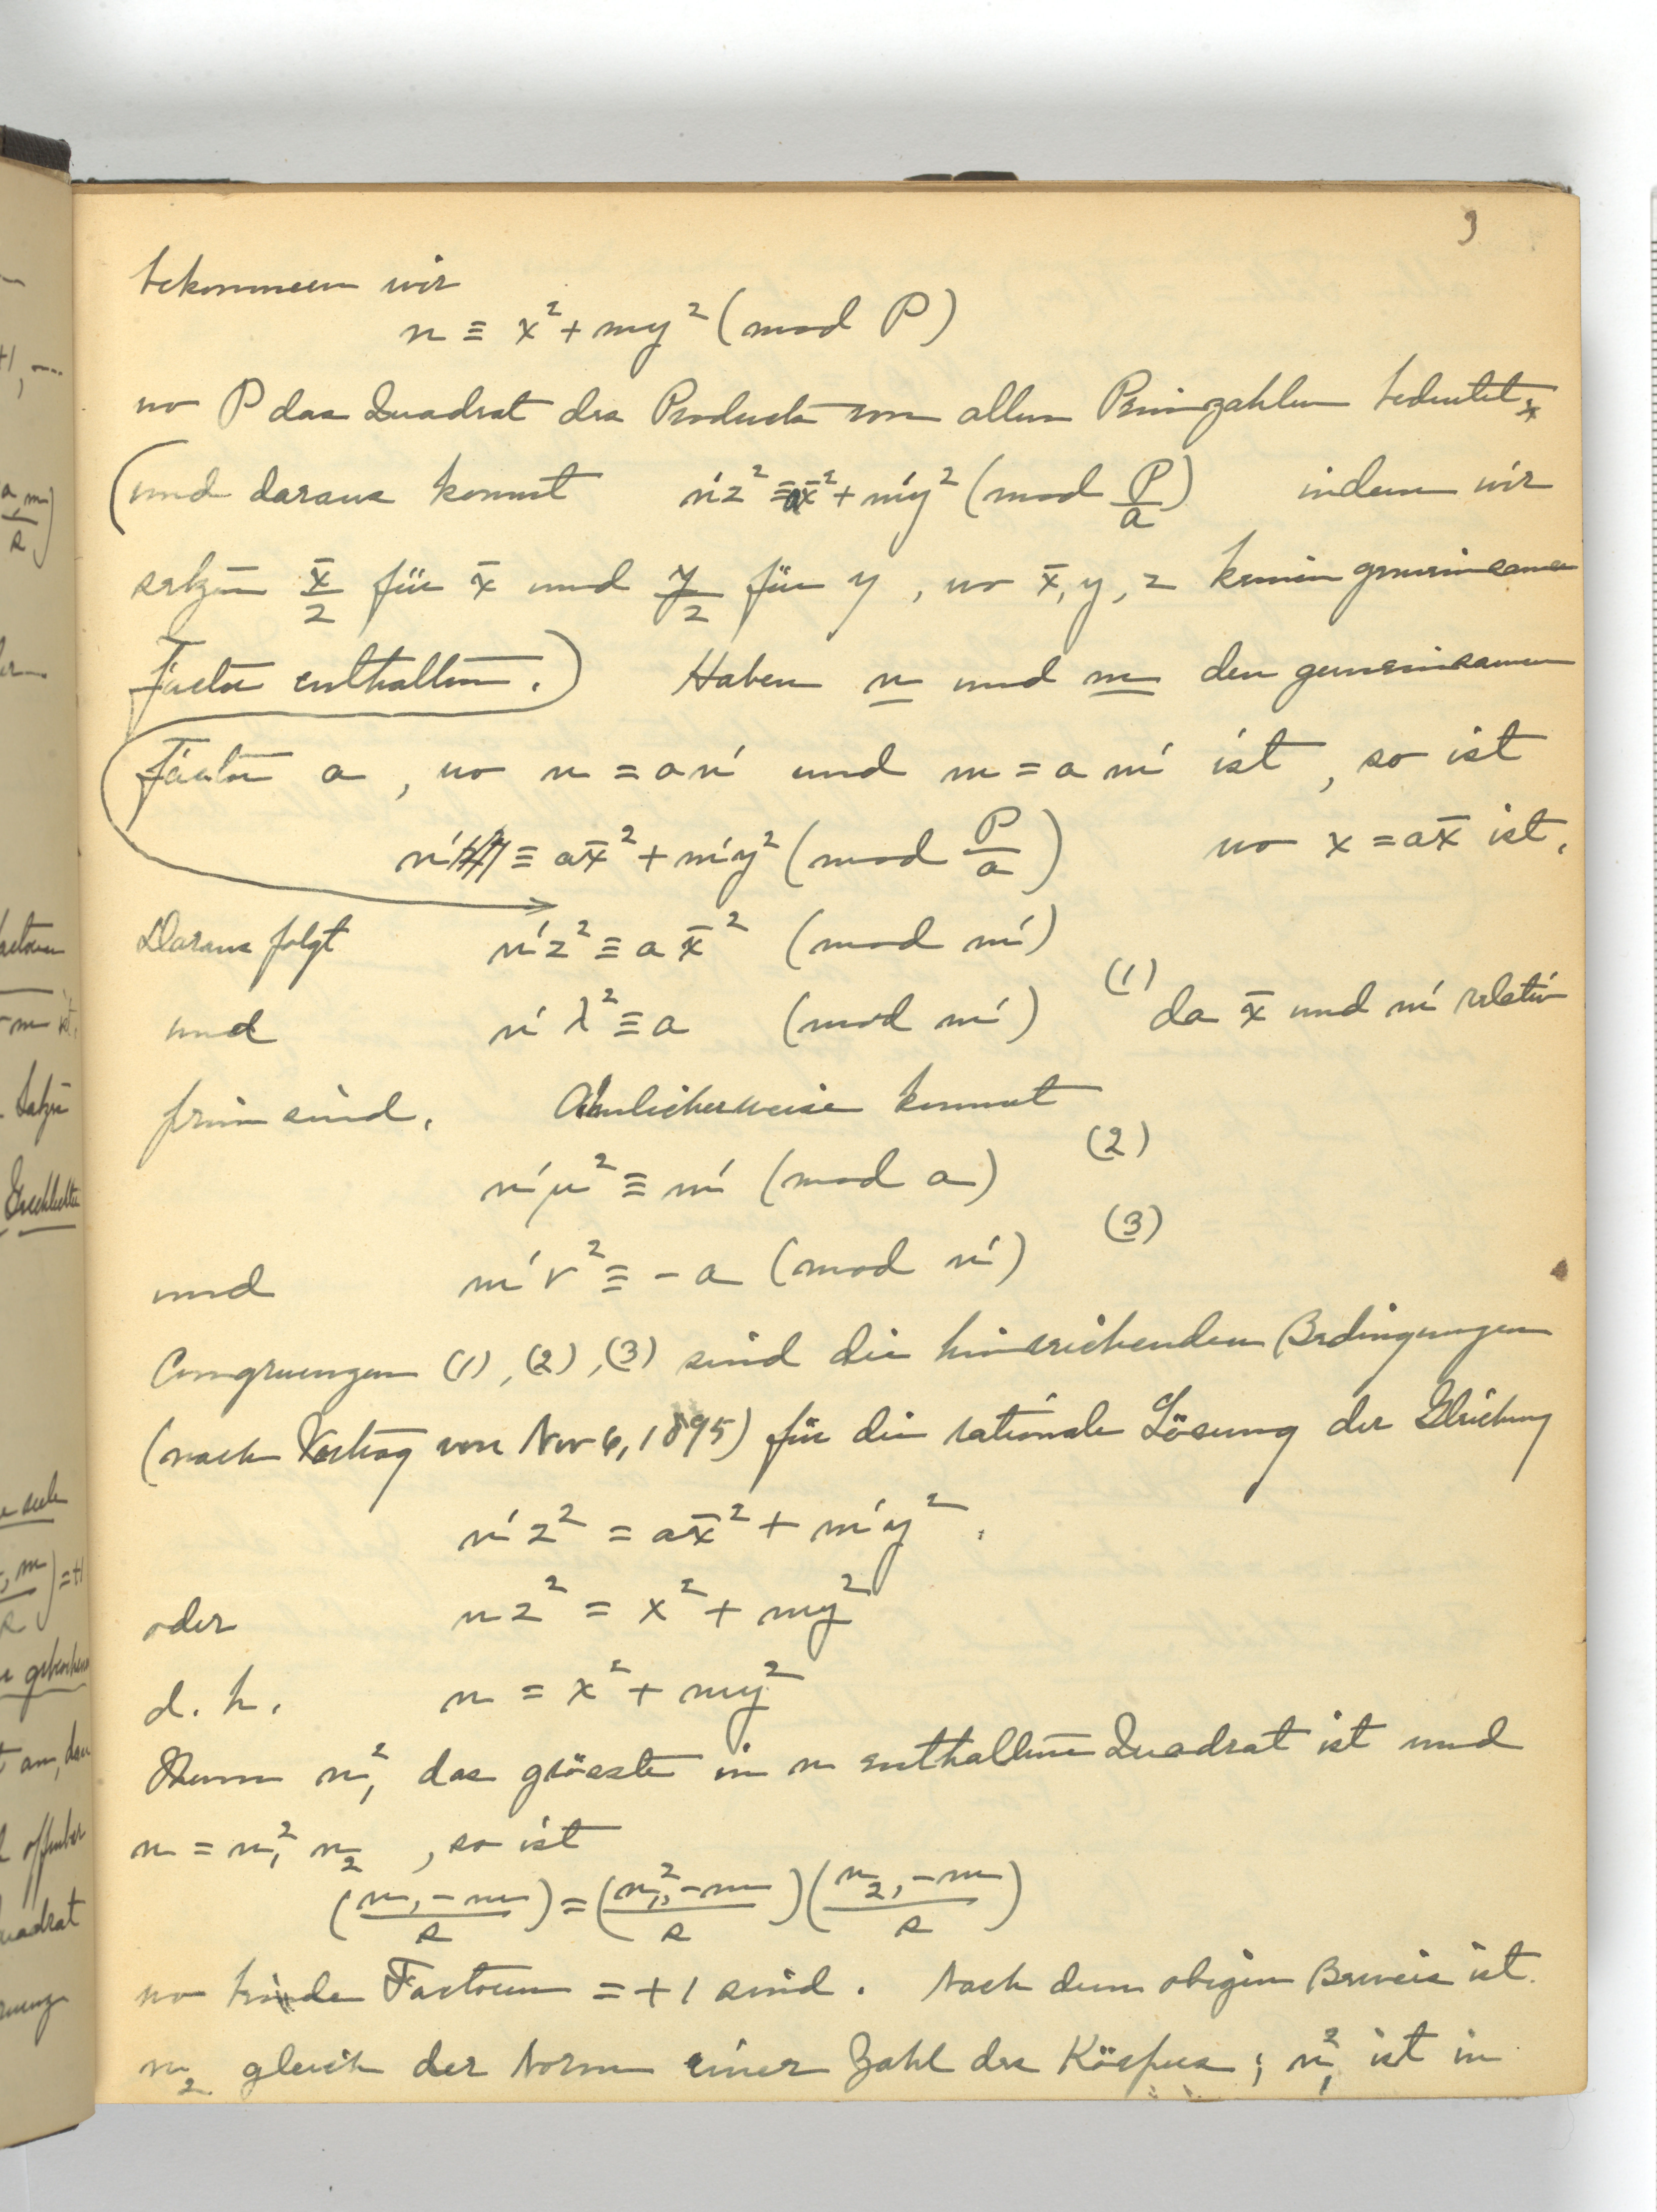 9
bekommen wir
n ≡ x² + my² (mod P)
wo P das Quadrat des Products von allen Primzahlen bedeutet,
(und daraus kommt n'z² ≡ ax̄² + m'y² (mod P/a) indem wir
setzen x̄/2 für x̄ und y/2 für y, wo x̄, y, z keinen gemeinsamen
Factor enthalten.) Haben n und m den gemeinsamen
Factor a, wo n = an' und m = am' ist, so ist
n' ≡ ax̄² + m'y² (mod P/a) wo x = ax̄ ist.
Daraus folgt n'z² ≡ ax̄² (mod m')
und n'λ² ≡ a (mod m') (1) da x̄ und m' relativ
prim sind. Ähnlicherweise kommt
n'μ² ≡ m' (mod a) (2)
und m'ν² ≡ -a (mod n') (3)
Congruenzen (1), (2), (3) sind die hinreichenden Bedingungen
(nach Vortrag von Nov 6, 1895) für die rationale Lösung der Gleichung
n'z² = ax̄² + m'y².
oder nz² = x² + my²
d. h. n = x² + my²
Wenn n₁² das grösste in n enthaltene Quadrat ist und
n = n₁² n₂, so ist
((n, -m)/s) = ((n₁², -m)/s) ((n₂, -m)/s)
wo beide Factoren = +1 sind. Nach dem obigen Beweis ist
n₂ gleich der Norm einer Zahl des Körpers; n₁² ist in